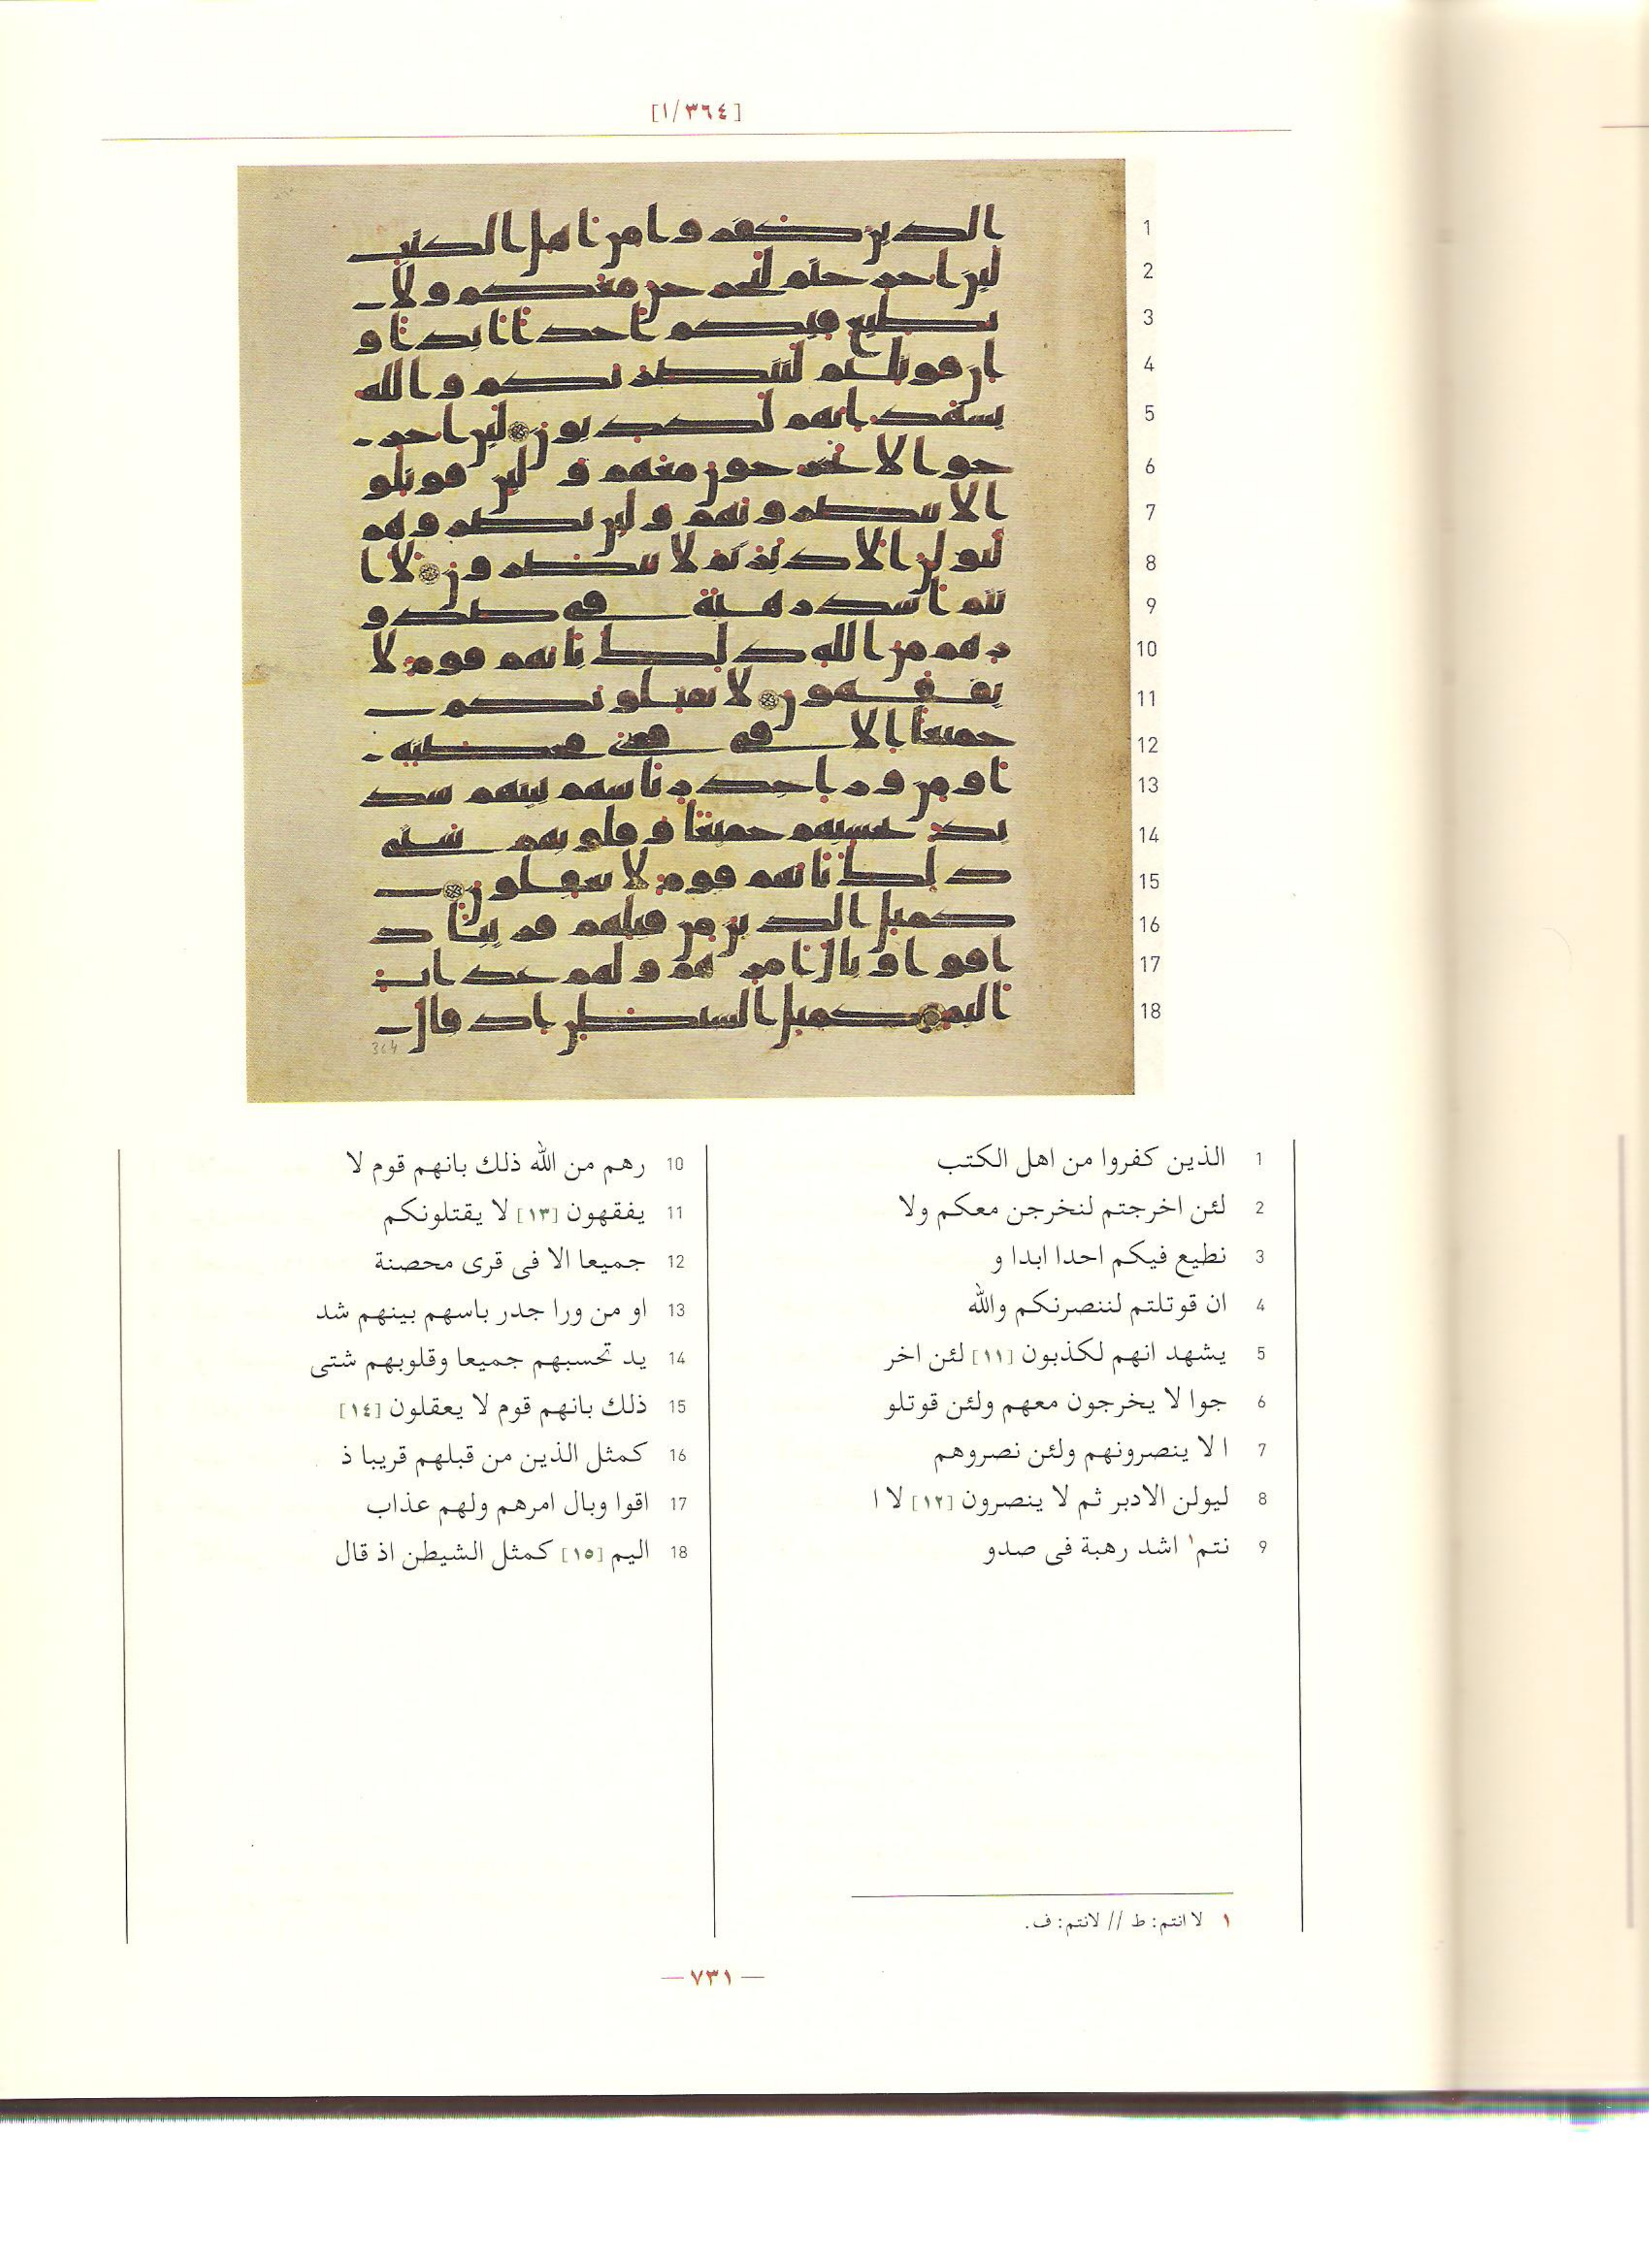 [١/٣٦٤]
1 الذين كفروا من اهل الكتب
2 لئن اخرجتم لنخرجن معكم ولا
3 نطيع فيكم احدا ابدا و
4 ان قوتلتم لننصرنكم والله
5 يشهد انهم لكذبون [١١] لئن اخر
6 جوا لا يخرجون معهم ولئن قوتلو
7 ا لا ينصرونهم ولئن نصروهم
8 ليولن الادبر ثم لا ينصرون [١٢] لا ا
9 نتم١ اشد رهبة فى صدو
10 رهم من الله ذلك بانهم قوم لا
11 يفقهون [١٣] لا يقتلونكم
12 جميعا الا فى قرى محصنة
13 او من ورا جدر باسهم بينهم شد
14 يد تحسبهم جميعا وقلوبهم شتى
15 ذلك بانهم قوم لا يعقلون [١٤]
16 كمثل الذين من قبلهم قريبا ذ
17 اقوا وبال امرهم ولهم عذاب
18 اليم [١٥] كمثل الشيطن اذ قال
١ لا انتم: ط // لانتم: ف.
— ٧٣١ —